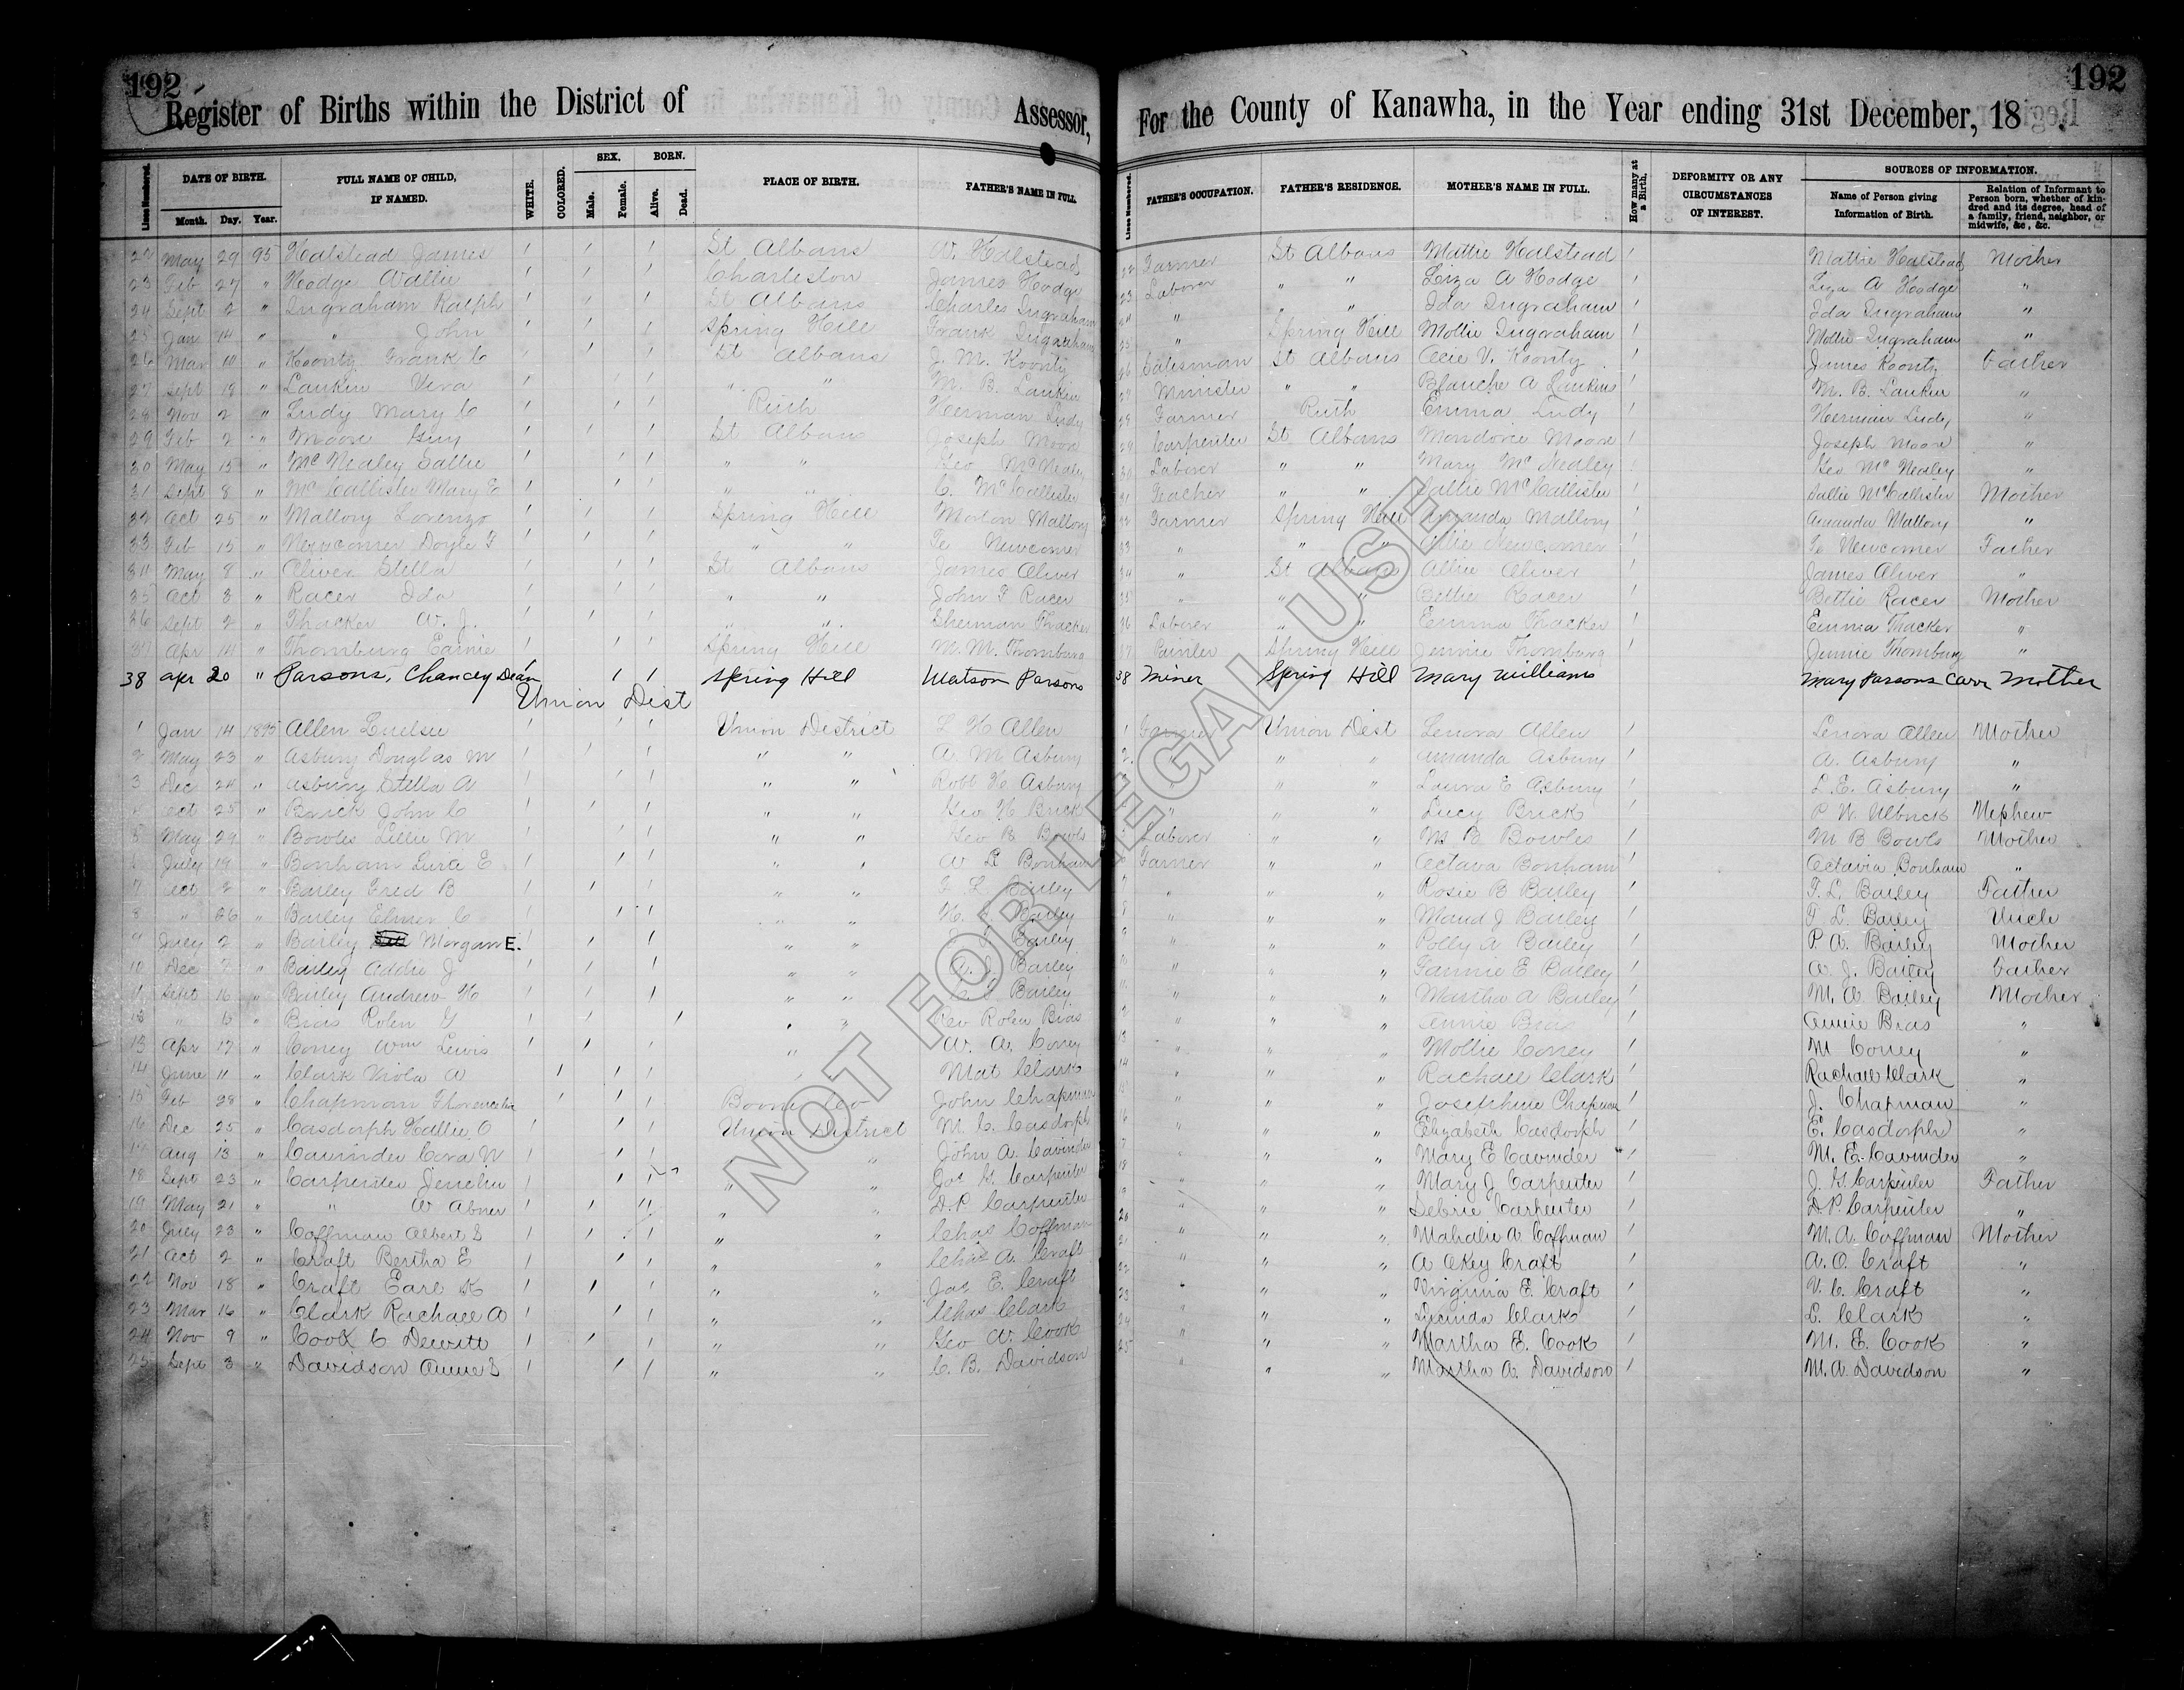 192
Register of Births within the District of Assessor,
192
For the County of Kanawha, in the Year ending 31st December, 18 .
Lines Numbered. DATE OF BIRTH. Month. Day. Year. FULL NAME OF CHILD, IF NAMED. WHITE. COLORED. SEX. Male. Female. BORN. Alive. Dead. PLACE OF BIRTH. FATHER'S NAME IN FULL.
Lines Numbered. FATHER'S OCCUPATION. FATHER'S RESIDENCE. MOTHER'S NAME IN FULL. How many at a Birth. DEFORMITY OR ANY CIRCUMSTANCES OF INTEREST. SOURCES OF INFORMATION. Name of Person giving Information of Birth. Relation of Informant to Person born, whether of kindred and its degree, head of a family, friend, neighbor, or midwife, &c., &c.
22 May 29 95 Halstead James / / / St Albans W. Halstead 22 Farmer St Albans Mattie Halstead / Mattie Halstead Mother
23 Feb 27 " Hodge Wallie / / / Charleston James Hodge 23 Laborer " " Liza A Hodge / Liza A Hodge "
24 Sept 2 " Ingraham Ralph / / / St Albans Charles Ingraham 24 " Ida Ingraham / Ida Ingraham "
25 Jan 14 " " John / / / Spring Hill Frank Ingraham 25 " Spring Hill Mollie Ingraham / Mollie Ingraham "
26 Mar " Koontz Frank C / / / St Albans J. M. Koontz 26 Salesman St Albans V. Koontz / James Koontz Father
27 Sept 18 " Lankin Vera / / / " " M. B. Lankin 27 Minister " " Blanche A Lankin / M. B. Lankin "
28 Nov 2 " Ludy Mary C / / / Ruth Herman Ludy 28 Farmer Ruth Emma Ludy / Herman Ludy "
29 Feb 2 " Moore Guy / / / St Albans Joseph Moore 29 Carpenter St Albans Moore / Joseph Moore "
30 May 15 " McNealey Sallie / / / " " Geo McNealey 30 Laborer " " Mary McNealey / Geo McNealey "
31 Sept 8 " McCallister Mary E / / / " " C. McCallister 31 Teacher " " Sallie McCallister / Sallie McCallister Mother
32 Oct 25 " Mallory Lorenzo / / / Spring Hill Morton Mallory 32 Farmer Spring Hill Amanda Mallory / Amanda Mallory "
33 Feb 15 " Newcomer Doyle F / / / " " Newcomer 33 " " " Newcomer / Newcomer Father
34 May 8 " Oliver Stella / / / St Albans James Oliver 34 " St Albans Allie Oliver / James Oliver "
35 Oct 3 " Racer Ida / / / " " John F Racer 35 " " " Bettie Racer / Bettie Racer Mother
36 Sept 2 " Thacker W. J. / / / " " Sherman Thacker 36 Laborer " " Emma Thacker / Emma Thacker "
37 Apr 14 " Thornburg Earnie / / / Spring Hill M. M. Thornburg 37 Painter Spring Hill Jennie Thornburg / Jennie Thornburg "
38 apr 20 " Parsons, Chancey Dean / / / Spring Hill Watson Parsons 38 miner Spring Hill Mary Williams Mary Parsons Carr Mother
Union Dist
1 Jan 14 1895 Allen / / / Union District L H Allen 1 Farmer Union Dist Lenora Allen / Lenora Allen Mother
2 May 23 " Asbury Douglas M / / / " " A. M. Asbury 2 " " Amanda Asbury / A. Asbury "
3 Dec 24 " Asbury Stella A / / / " " Robt H. Asbury " " " Laura E Asbury / L. E. Asbury "
4 Oct 25 " Brick John C / / / " " Geo H Brick " " " Lucy Brick / P. W. Nephew
5 May 29 " Bowles Lillie M / / / " " Geo B Bowls Laborer " " M B Bowles / M B Bowls Mother
6 July 19 " Bonham E / / / " " W R Bonham Farmer " " Octava Bonham / Octavia Bonham "
7 Oct 2 " Bailey Fred B / / / " " F L Bailey " " " Rosie B Bailey / F. L. Bailey Father
8 " 26 " Bailey Elmer C / / / " " Bailey " " " Maud J Bailey / F L. Bailey Uncle
9 July 2 " Bailey Morgan E. / / / " " Bailey " " " Polly A Bailey / P. A. Bailey Mother
10 Dec 7 " Bailey Addie J / / / " " W. J. Bailey " " Fannie E Bailey / W. J. Bailey Father
11 Sept 16 " Bailey Andrew H / / / " " Bailey " " " Martha A Bailey / M. A. Bailey Mother
12 " " Bias Rolen G / / / " " Geo Rolen Bias " " " Annie Bias / Annie Bias "
13 Apr 17 " Correy Wm Lewis / / / " W. A. Correy " " " Mollie Correy / M Correy "
14 June 11 " Clark Viola A / / / Mat Clark " " " Rachael Clark / Rachael Clark "
15 Feb 28 " Chapman / / / Boone Co John Chapman " " " Josephine Chapman / J. Chapman "
16 Dec 25 " Casdorph Hallie O / / / Union District M. C. Casdorph " " " Elizabeth Casdorph / E. Casdorph "
17 Aug 13 " Cavinder Cora N / / / " John A. Cavinder " " Mary E Cavinder / M. E. Cavinder "
18 Sept 23 " Carpenter / / / " " Jos G. Carpenter " " " Mary J Carpenter / J. G. Carpenter Father
19 May 21 " " W Abner / / / " " D. P. Carpenter " " " Carpenter / D. P. Carpenter "
20 July 23 " Coffman Albert S / / / " " Chas Coffman " " " Mahalie A. Coffman / M. A. Coffman Mother
21 Oct 2 " Craft Bertha E / / / " " Chas A. Craft " " " A Okey Craft / A. O. Craft "
22 Nov 18 " Craft Earl K / / / " " Jas E. Craft " " " Virginia E. Craft / V. C. Craft "
23 Mar 16 " Clark Rachael A / / / " " Chas Clark " " " Lucinda Clark / L. Clark "
24 Nov 9 " Cook C Dewitt / / / " " Geo W. Cook " " " Martha E. Cook / M. E. Cook "
25 Sept 3 " Davidson Annie S / / / " " C. B. Davidson 25 " " " Martha A. Davidson / M. A. Davidson "
NOT FOR LEGAL USE